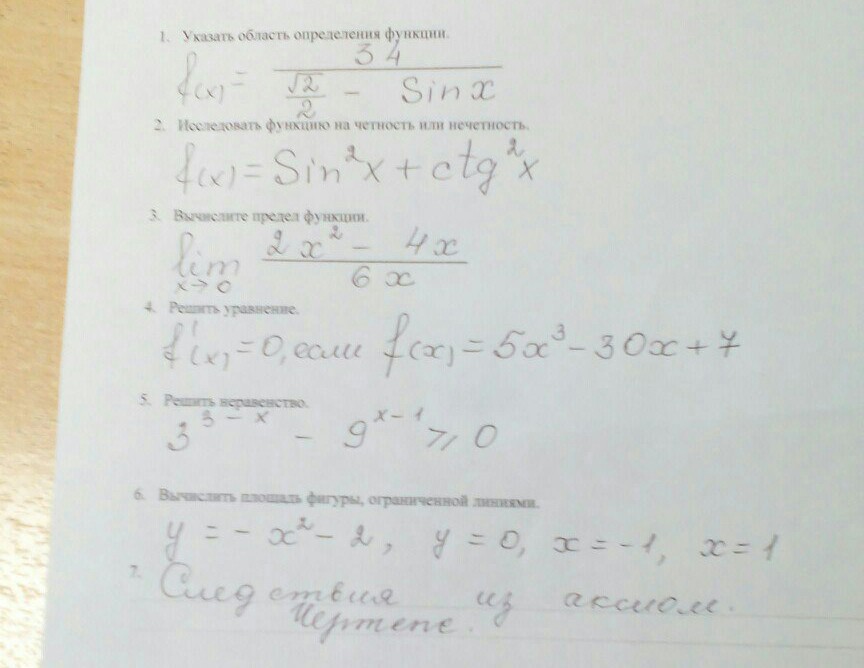 1. Указать область определения функции.
f(x) = 34 / (√2/2 - Sin x)
2. Исследовать функцию на четность или нечетность.
f(x) = Sin²x + ctg²x
3. Вычислите предел функции.
lim x→0 (2x² - 4x) / 6x
4. Решить уравнение.
f'(x) = 0, если f(x) = 5x³ - 30x + 7
5. Решить неравенство.
3^(3-x) - 9^(x-1) ⩾ 0
6. Вычислить площадь фигуры, ограниченной линиями.
y = -x² - 2, y = 0, x = -1, x = 1
7. Следствия из аксиом.
Чертеже.